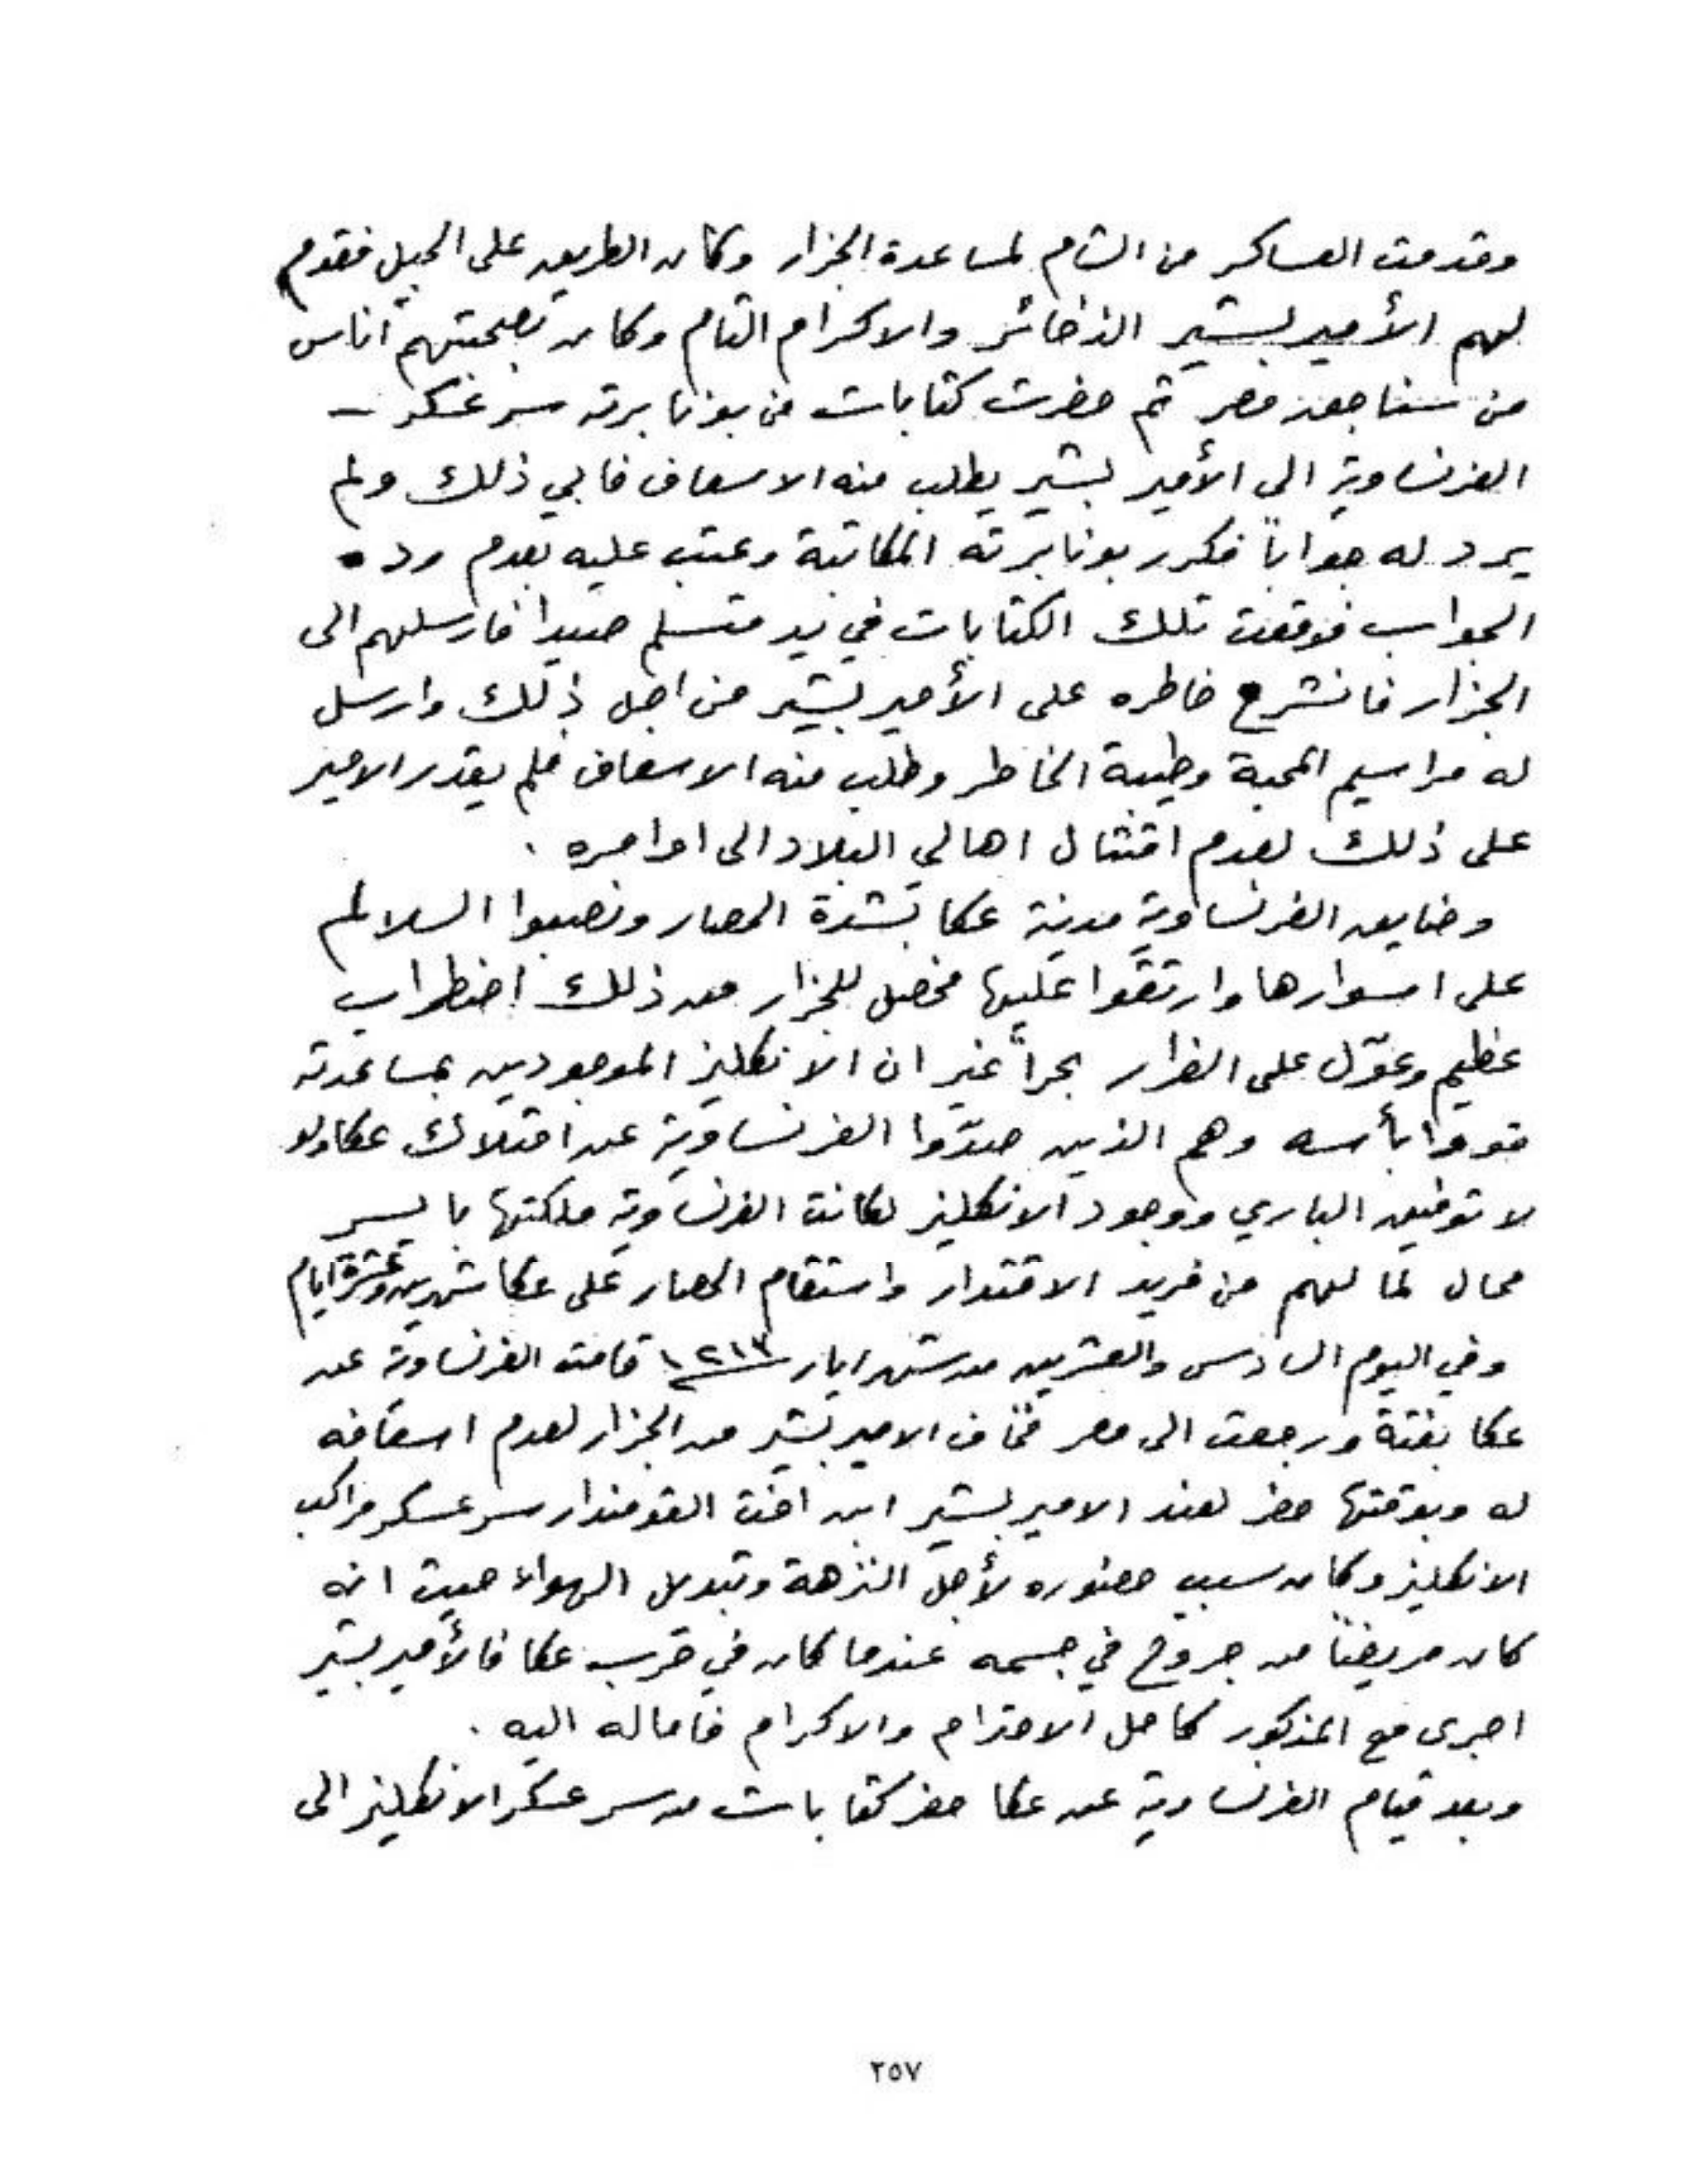 وقدمت العساكر من الشام لمساعدة الجزار وكان الطريق على الجبل فقدم
لهم الأمير بشير الذخائر والاكرام التام وكان بصحبتهم اناس
من سناجق مصر ثم حضرت كتابات من بونابرته سر عسكر –
الفرنساوية الى الأمير بشير يطلب منه الاسعاف فابي ذلك ولم
يرد له جواباً فكرر بونابرته المكاتبة وعتب عليه بعدم رده
الجواب فوقعت تلك الكتابات في يد متسلم صيدا فارسلهم الى
الجزار فانشرح خاطره على الأمير بشير من اجل ذلك وارسل
له مراسيم المحبة وطيبة الخاطر وطلب منه الاسعاف فلم يقدر الامير
على ذلك لعدم امتثال اهالي البلاد الى اوامره .
وضايق الفرنساوية مدينة عكا بشدة الحصار ونصبوا السلالم
على اسوارها وارتقوا عليها فحصل للجزار من ذلك اضطراب
عظيم وعوّل على الفرار بحراً غير ان الانكليز الموجودين بمساعدته
قووا بأسه وهم الذين صدّوا الفرنساوية عن امتلاك عكا ولو
لا توفيق الباري ووجود الانكليز لكانت الفرنساوية ملكتها بايسر
محال لما لهم من فريد الاقتدار واستقام الحصار على عكا شهرين وعشرة ايام
وفي اليوم السادس والعشرين من شهر ايار ١٢١٣ قامت الفرنساوية عن
عكا بغتة ورجعت الى مصر فخاف الامير بشير من الجزار لعدم اسعافه
له وبوقتها حضر لعند الامير بشير ابن اخت القومندار سر عسكر مراكب
الانكليز وكان سبب حضوره لأجل النزهة وتبديل الهواء حيث انه
كان مريضاً من جروح في جسمه عندما كان في حرب عكا فالأمير بشير
اجرى مع المذكور كامل الاحترام والاكرام فاماله اليه .
وبعد قيام الفرنساوية عن عكا حضر كتابات من سر عسكر الانكليز الى
٢٥٧